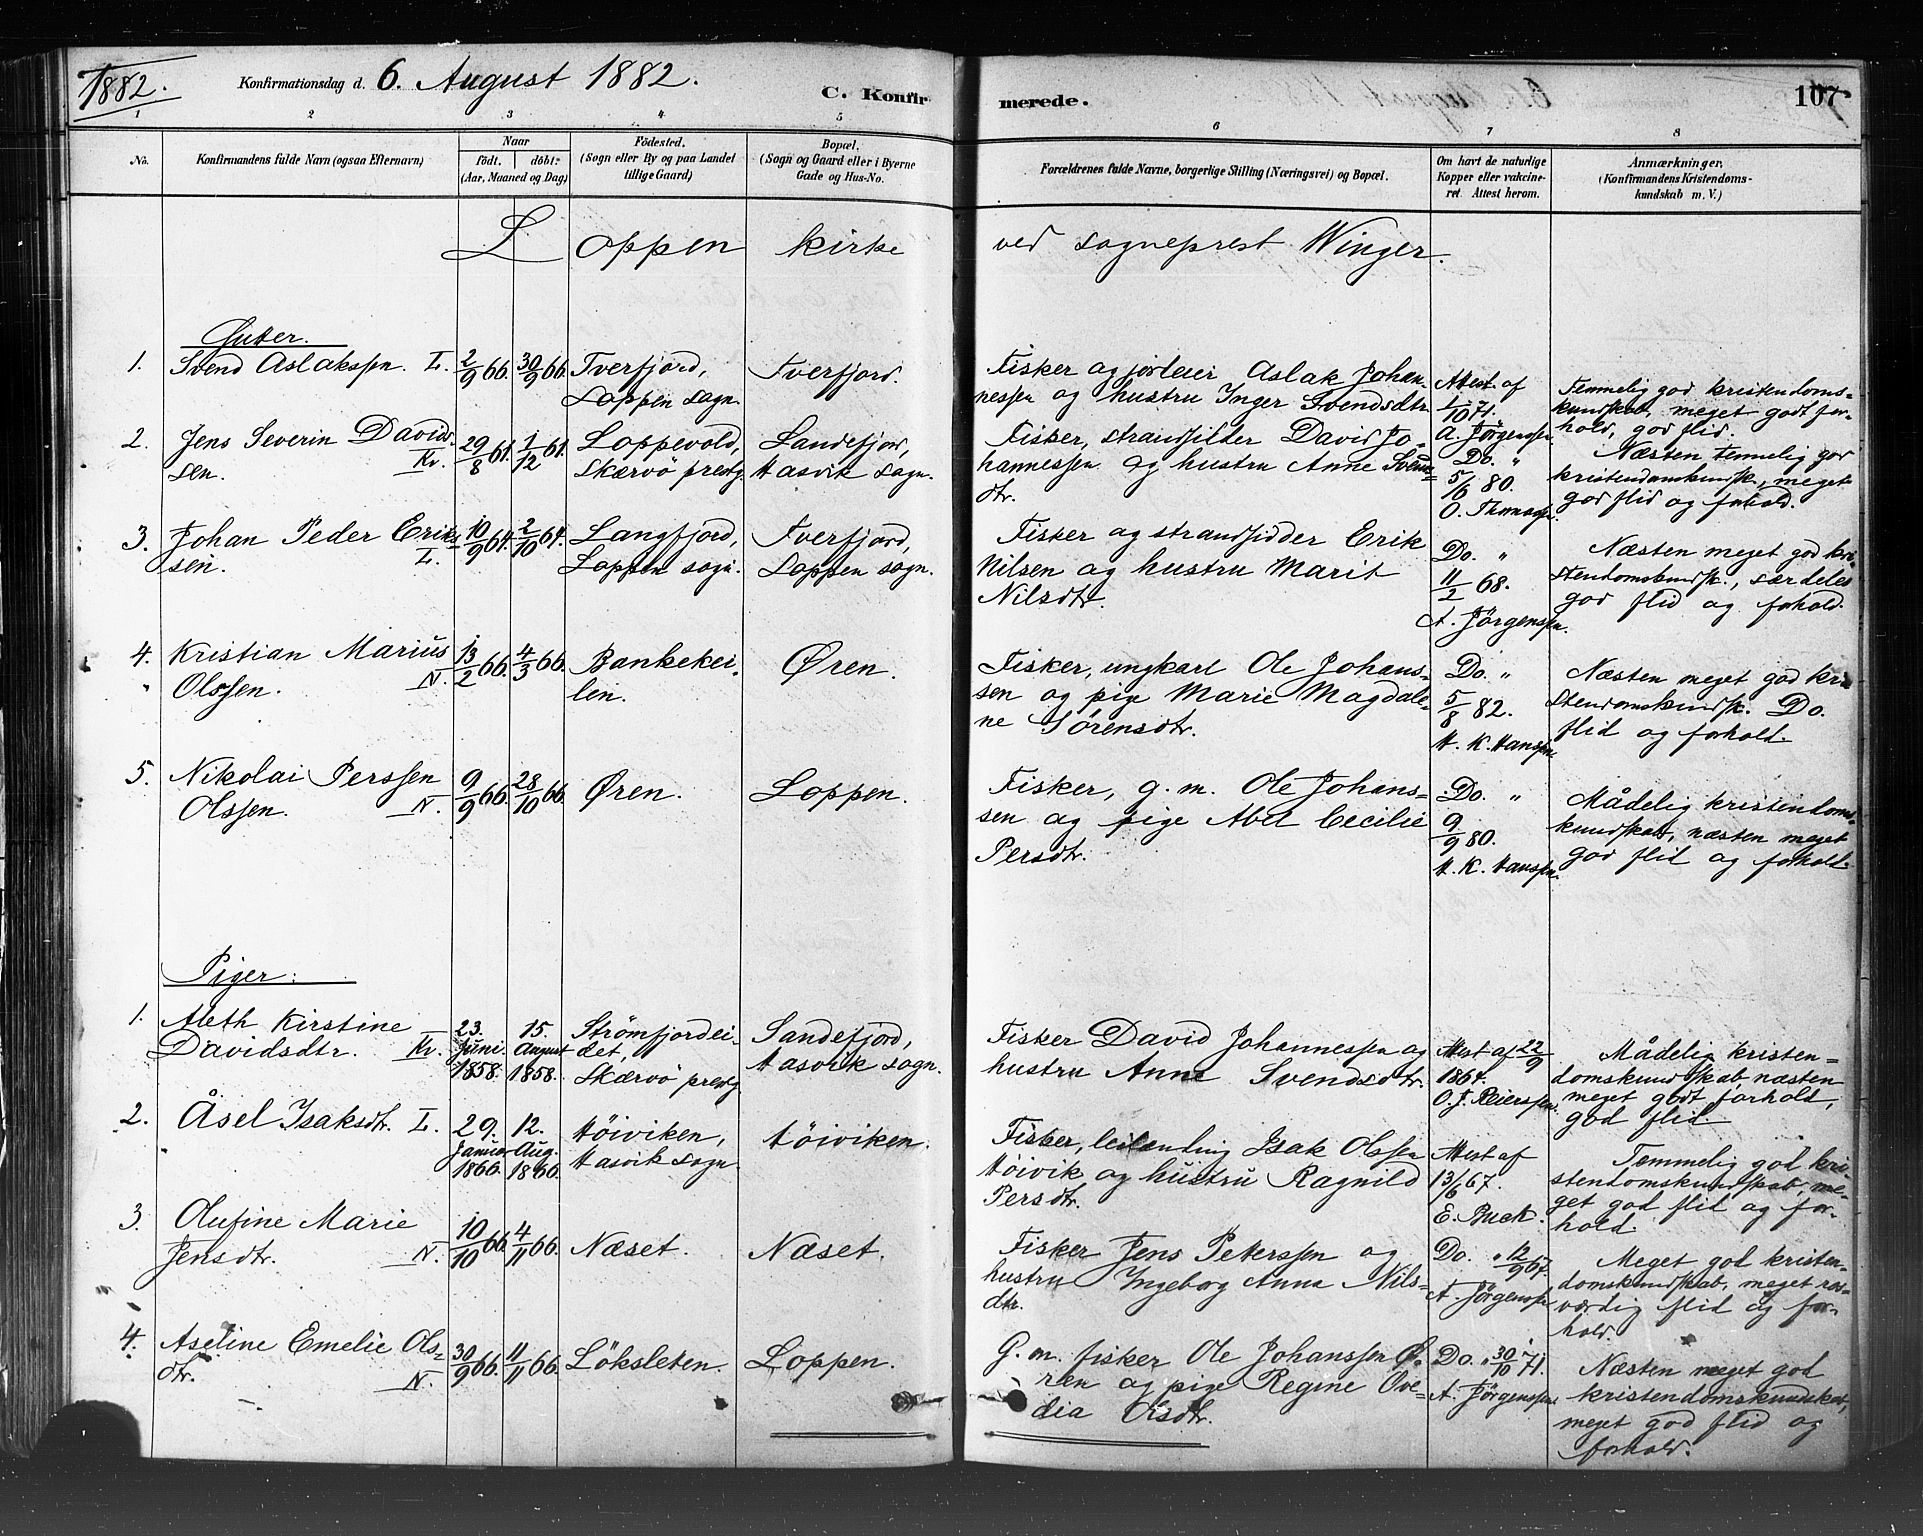 1882.
Konfirmationsdag d. 6. August 1882.
C. Konfir
merede.
107
1 2 3 4 5 6 7 8
No.
Konfirmandens fulde Navn (ogsaa Efternavn)
Naar
födt. döbt:
(Aar, Maaned og Dag)
Födested.
(Sogn eller By og paa Landet
tillige Gaard)
Bopæl.
(Sogn og Gaard eller i Byerne
Gade og Hus-No.
Forældrenes fulde Navne, borgerlige Stilling (Næringsvei) og Bopæl.
Om havt de naturlige
Kopper eller vakcine-
ret Attest herom.
Anmærkninger.
(Konfirmandens Kristendoms-
kundskab m. V.)
Loppen kirke ved sogneprest Winger.
Gutter.
1. Svend Aslakssen. L. 2/9 66. 30/9 66.
Tverfjord,
Loppen sogn.
Tverfjord.
Fisker og jordeier Aslak Johan-
nessen og hustru Inger Svendsdtr.
Attest af
1/10 71.
A. Jörgenssen.
Temmelig god kristendoms-
kundskab, meget godt for-
hold, god flid.
2. Jens Severin Davids-
sen. Kv. 29/8 61. 1/12 61.
Loppevold,
Skærvö prestg.
Sandefjord,
Hasvik sogn.
Fisker, strandsidder David Jo-
hannessen og hustru Anne Svends-
dtr.
Do. "
5/6 80.
O. Thomassen.
Næsten temmelig god
kristendomskundsk., meget
god flid og forhold.
3. Johan Peder Eriks-
sen. L. 10/9 64. 2/10 64.
Langfjord,
Loppen sogn.
Tverfjord,
Loppen sogn.
Fisker og strandsidder Erik
Nilsen og hustru Marit
Nilsdtr.
Do. "
11/2 68.
A. Jörgenssen.
Næsten meget god kri-
stendomskundsk., særdeles
god flid og forhold.
4. Kristian Marius
Olssen. N. 13/2 66. 4/3 66.
Bankekei-
len.
Øren.
Fisker, ungkarl Ole Johans-
sen og pige Marie Magdale-
ne Sörensdtr.
Do. "
5/8 82.
H. K. Hanssen
Næsten meget god kri-
stendomskundsk. Do.
flid og forhold.
5. Nikolai Perssen
Olssen. N. 9/9 66. 28/10 66.
Øren.
Loppen.
Fisker, g. m. Ole Johans-
sen og pige Abel Cecilie
Persdtr.
Do. "
9/9 80.
H. K. Hanssen.
Mådelig kristendoms-
kundskab, næsten meget
god flid og forhold.
Piger:
1. Aleth Kirstine
Davidsdtr. Kv.
23. Juni 1858.
15. August 1858.
Strömfjordei-
det,
Skærvö prestg
Sandefjord,
Hasvik sogn.
Fisker David Johannessen og
hustru Anne Svendsdtr.
Attest af 22/9
1864.
O. J. Reierssen.
Mådelig kristen-
domskundskab, næsten
meget godt forhold,
god flid.
2. Åsel Isaksdtr. L.
29. Januar 1866.
12. Aug. 1866.
Höiviken,
Hasvik sogn.
Höiviken.
Fisker, leilænding Isak Olssen
Höivik og hustru Ragnild
Persdtr.
Attest af
13/6 67.
E. Buck.
Temmelig god kri-
stendomskundskab, me-
get god flid og for-
hold.
3. Olufine Marie
Jensdtr. N. 10/10 66. 4/11 66.
Næset.
Næset.
Fisker Jens Peterssen og
hustru Ingeborg Anna Nils-
dtr.
Do. " 12/9 67.
A. Jörgenssen
Meget god kristen-
domskundskab, meget ros-
værdig flid og for-
hold.
4. Aseline Emelie Ols-
dtr. N. 30/9 66. 11/11 66.
Löksleten.
Loppen.
G. m. fisker Ole Johanssen Ö-
ren og pige Regine Ove-
dia Olsdtr.
Do. " 30/10 71.
A. Jörgenssen.
Næsten meget god
kristendomskundskab,
meget god flid og
forhold.